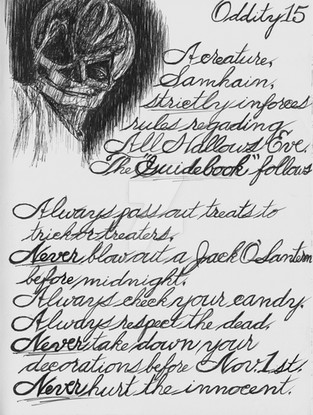 Oddity 15
A creature,
Samhain,
strictly inforces
rules regading
All Hallows Eve.
The "Guidebook" follows
Always pass out treats to
trick or treaters.
Never blow out a Jack O'Lantern
before midnight.
Always check your candy.
Always respect the dead.
Never take down your
decorations before Nov. 1st.
Never hurt the innocent.